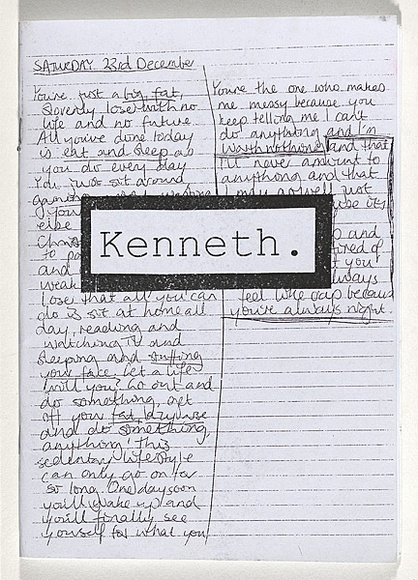 SATURDAY 23rd December
You're just a big, fat,
loser with no
life and no future
All you've done today
is eat and sleep as
you do every day
You just sit around
else
to
and
weak
lose that all you can
do is sit at home all
day, reading and
watching TV and
sleeping and stuffing
your face. Get a life
will you? Go out and
do something, get
off your fat,
and do something,
anything! This
sedentary lifestyle
can only go on for
so long. One day soon
you'll wake up and
you'll finally see
yourself for what you
You're the one who makes
me messy because you
keep telling me I can't
do anything and I'm
worth nothing and that
I'll never amount to
anything and that
just
up and
tired of
you
always
feel like crap because
you're always right.
Kenneth.